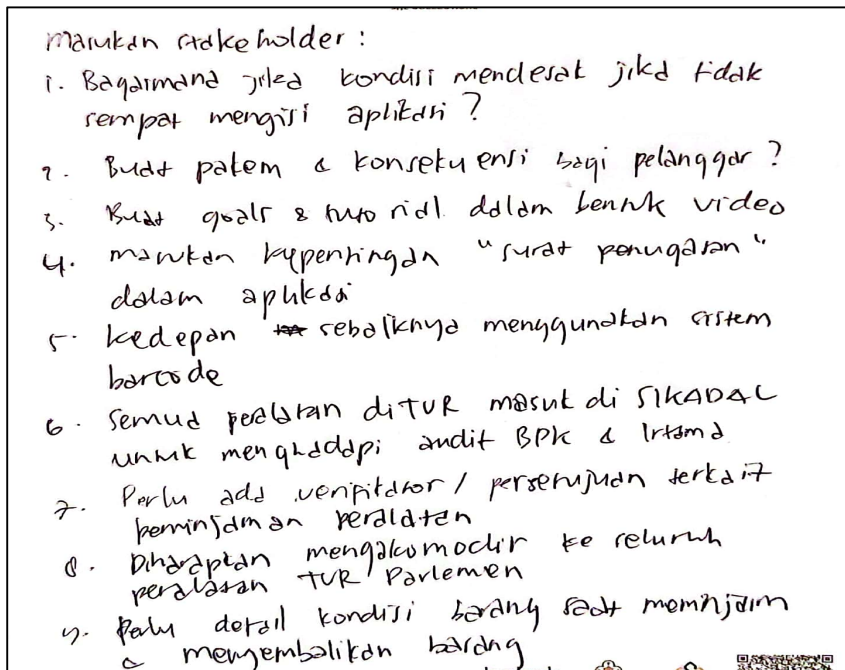 Masukan stakeholder :
1. Bagaimana jika kondisi mendesak jika tidak
sempat mengisi aplikasi ?
2. Buat pakem & konsekuensi bagi pelanggar ?
3. Buat goals & tutorial dalam bentuk video
4. masukan kepentingan "surat penugasan"
dalam aplikasi
5. kedepan sebaliknya menggunakan sistem
barcode
6. Semua peralatan di TVR masuk di SIKADAL
untuk menghadapi audit BPK & Irtama
7. Perlu ada verifikator / persetujuan terkait
peminjaman peralatan
8. Diharapkan mengakomodir ke seluruh
peralatan TVR Parlemen
9. Perlu detail kondisi barang saat meminjam
& mengembalikan barang